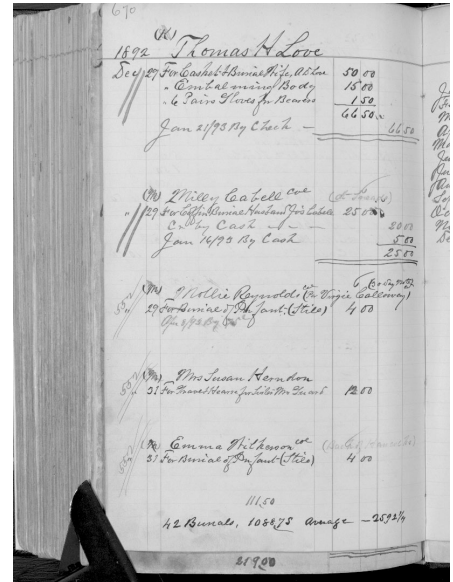 670
(K)
1892 Thomas H Love
Dec 27 For Casket & Burial Wife, 50 00
" Embalming Body 15 00
" 6 Pairs Gloves for Bearers 1 50
66 50
Jan 21/93 By Check — 66 50
Milly Cabell col
" 29 For Coffin & Burial Husband Jos Cabell 25 00
Cr by Cash 20 00
Jan 16/93 By Cash 5 00
25 00
Mollie Reynolds col (Per Virgie Calloway)
29 For Burial of Infant (Stiles) 4 00
Mrs Susan Herndon
31 For Grave & Hearse for Sister Mrs 12 00
Emma Wilkerson col
31 For Burial of Infant (Stiles) 4 00
111.50
42 Burials, 1088.75 Average — 25 92 1/4
219 00